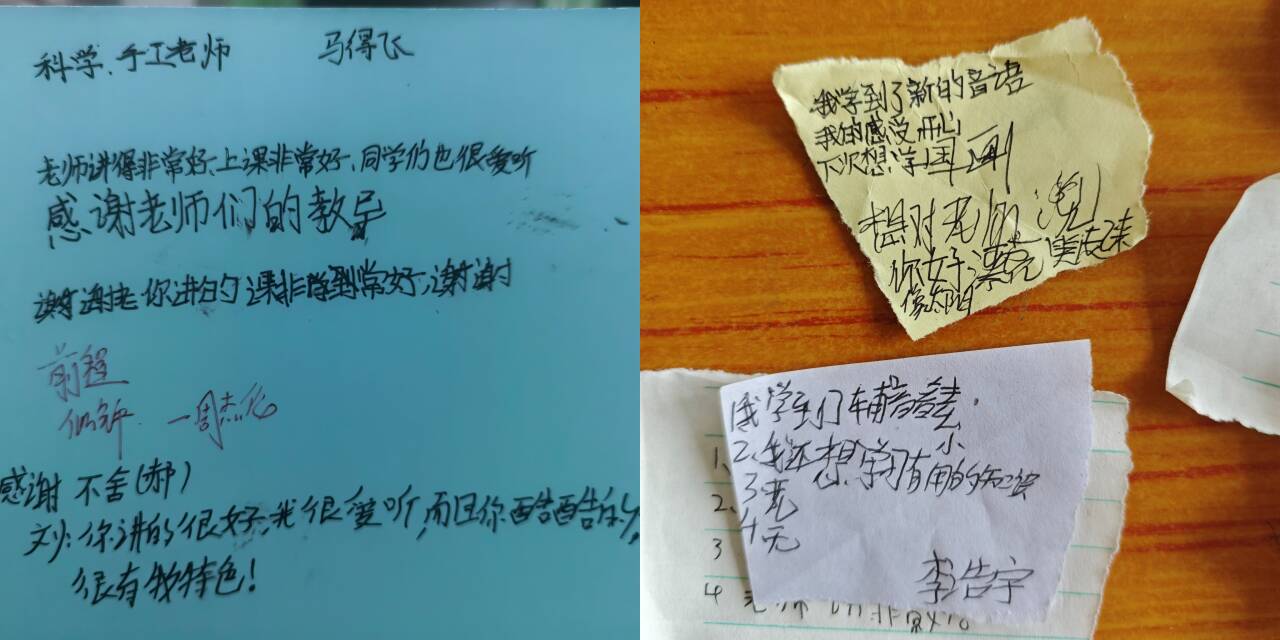 科学、手工老师 马得飞
老师讲得非常好、上课非常好、同学们也很爱听
感谢老师们的教导
谢谢老你讲的课非常好,谢谢
前程
一周杰伦
感谢 不舍(郝)
刘:你讲的很好,我很爱听,而且你酷酷的,
很有特色!
我学到了新的音语
我的感受 开心
下次想学国画
想对老师说
你好漂亮 美起来
像太阳
我学到了辅音
2、我还想学有用的知识
3无
4无
李浩宇
1、
2、
3
4